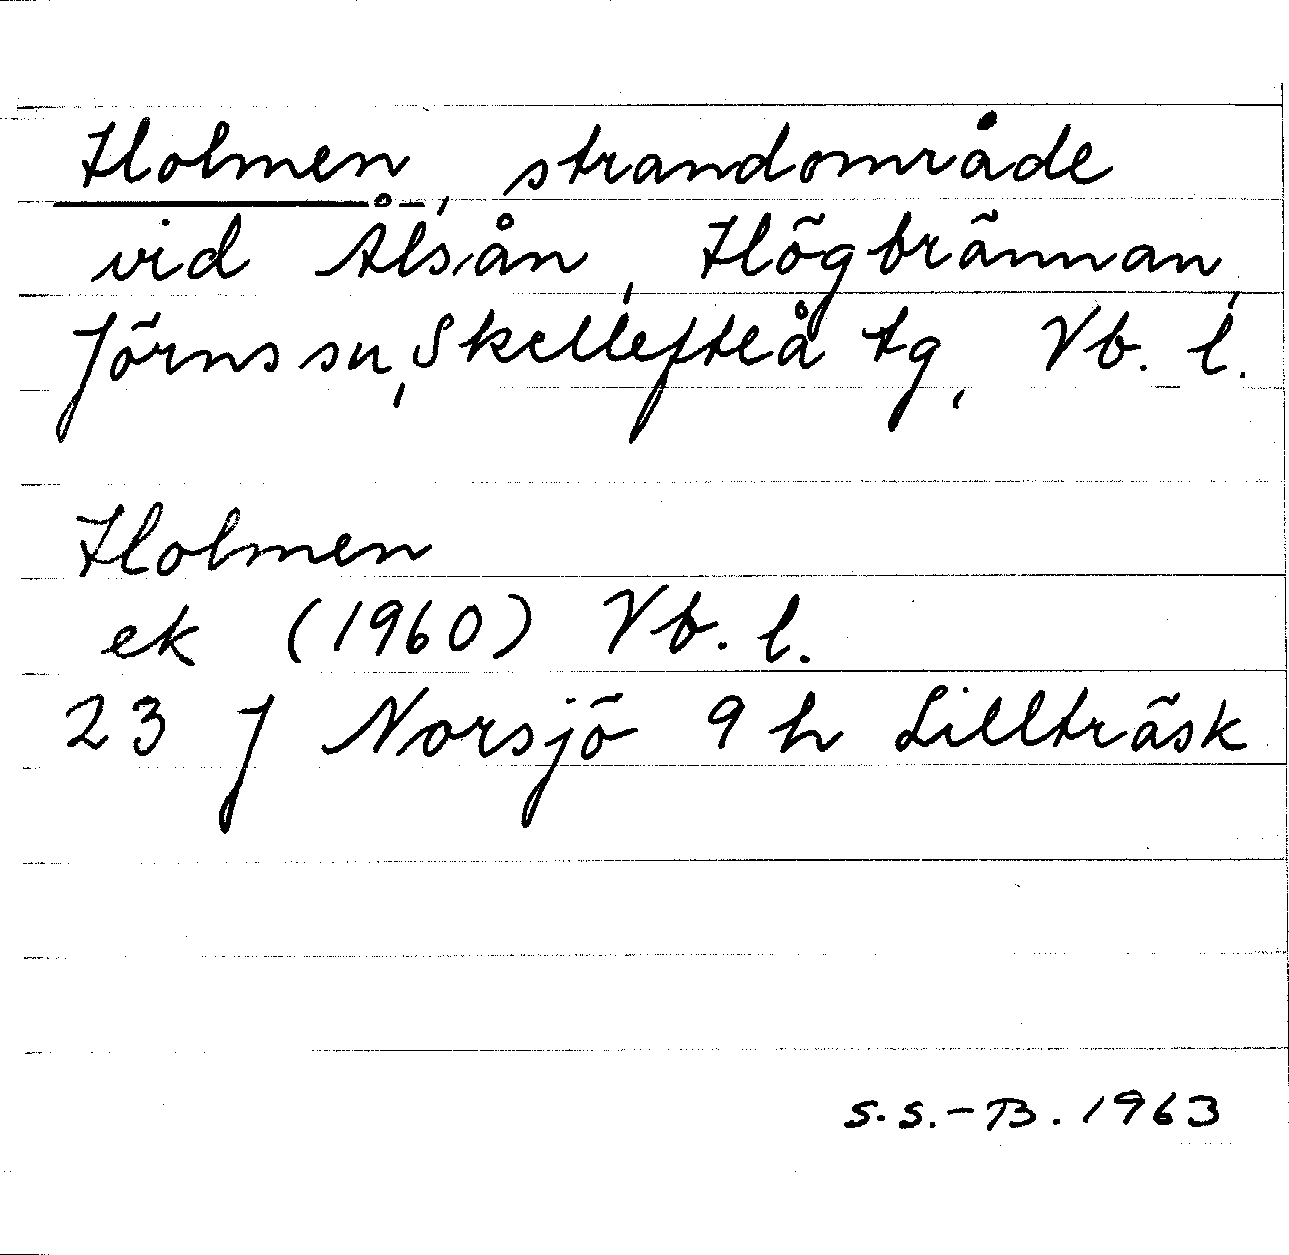 Holmen, strandområde
vid Ålsån, Högbrännan,
Jörns sn, Skellefteå tg, Vb. l.
Holmen
ek (1960) Vb. l.
23 J Norsjö 9 h Lillträsk
S.S.-B. 1963